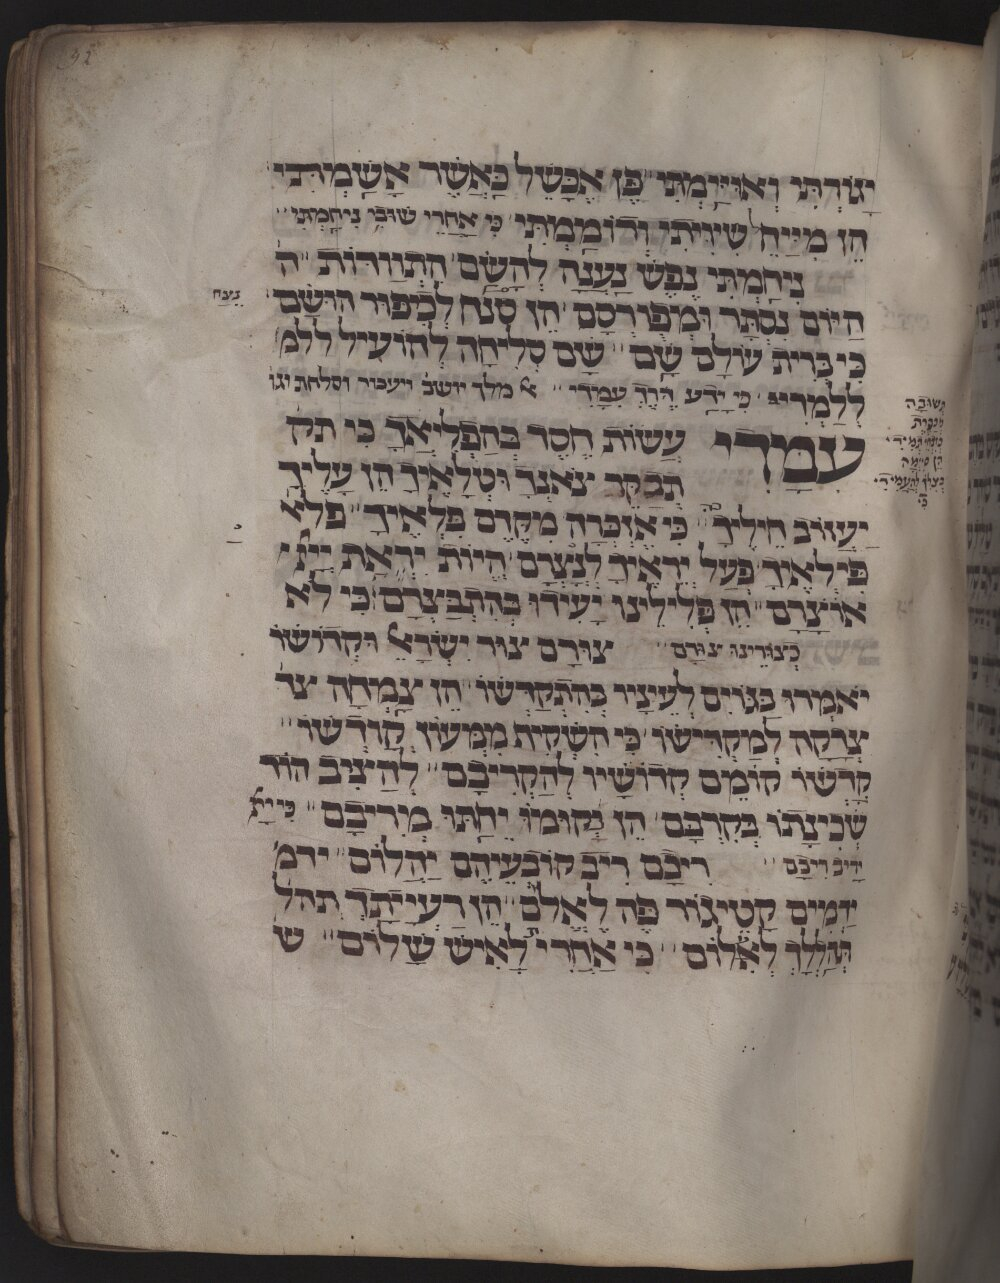 92
יגורתי ואויימתי פן אכשל כאשר אשמתי
הן מייחל שיויתי ורוממתי כי אחרי שובי ניחמתי
ניחמתי נפש נענה להשם התוודות ה
היום נסתר ומפורסם הן סנח לכיפור הושם
נצח
כי ברית עולם שם שם סליחה להועיל ללמ
ללמדי כי ידע דרך עמדי א מלך יושב ויעבור וסלחת וגו
תשובה
עמדי עשות חסד בהפליאך כי תק
תבקר צאנך וטלאיך הן עליך
יעזוב חיליך כי אזכרה מקדם פלאיך פלא
פילאיך פעל יראיך לנצרם היות יראת יי
אוצרם הן פלילינו יעידו בהתבצרם כי לא
כצורינו צורם צורם צור ישראל וקדושו
יאמרו בגוים לעיציו בהתקדשו הן צמחה צד
צדקה למקדישו כי השקית ממעון קודשו
קדשו קומם קדושיו להקריבם להציב הוד
שכינתו בקרבם הן בקומו יחתו מריבם כי יי
יריב ריבם ריבם ריב קובעיהם יהלום ידמ
ידמים קטיגור פה לאלם הן רעייתך תהל
תהללך לאלום כי אחרי לאיש שלום ש